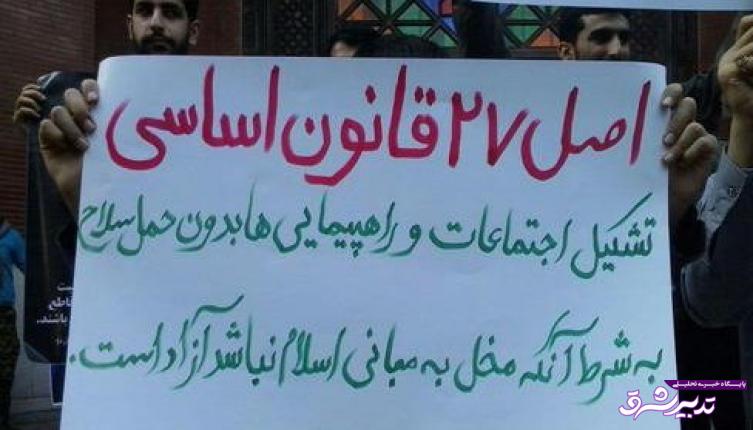 اصل ۲۷ قانون اساسی
تشکیل اجتماعات و راهپیمایی ها بدون حمل سلاح
به شرط آنکه مخل به مبانی اسلام نباشد آزاد است.
قاطع
باشند.
پایگاه خبری تحلیلی
تدبیر شرق